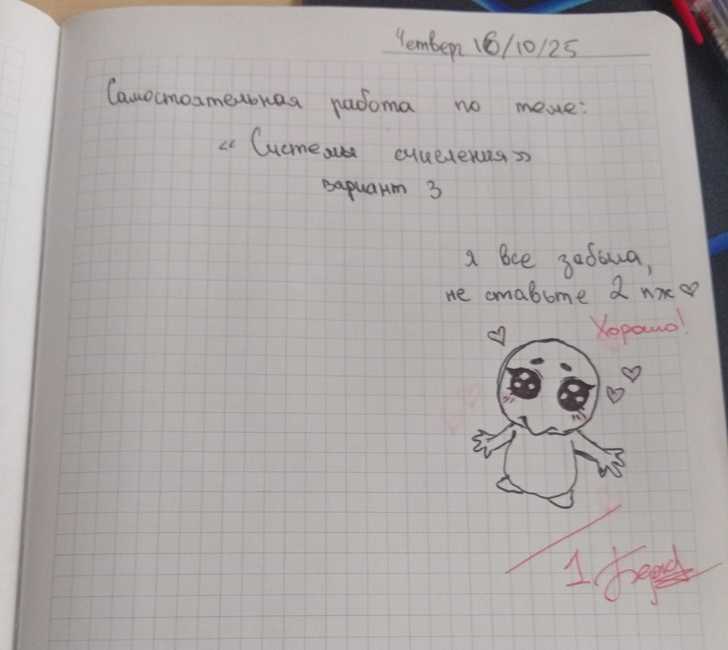 Четверг 16/10/25
Самостоятельная работа по теме:
« Системы счисления»
вариант 3
я все забыла,
не ставьте 2 пж♡
Хорошо!
1